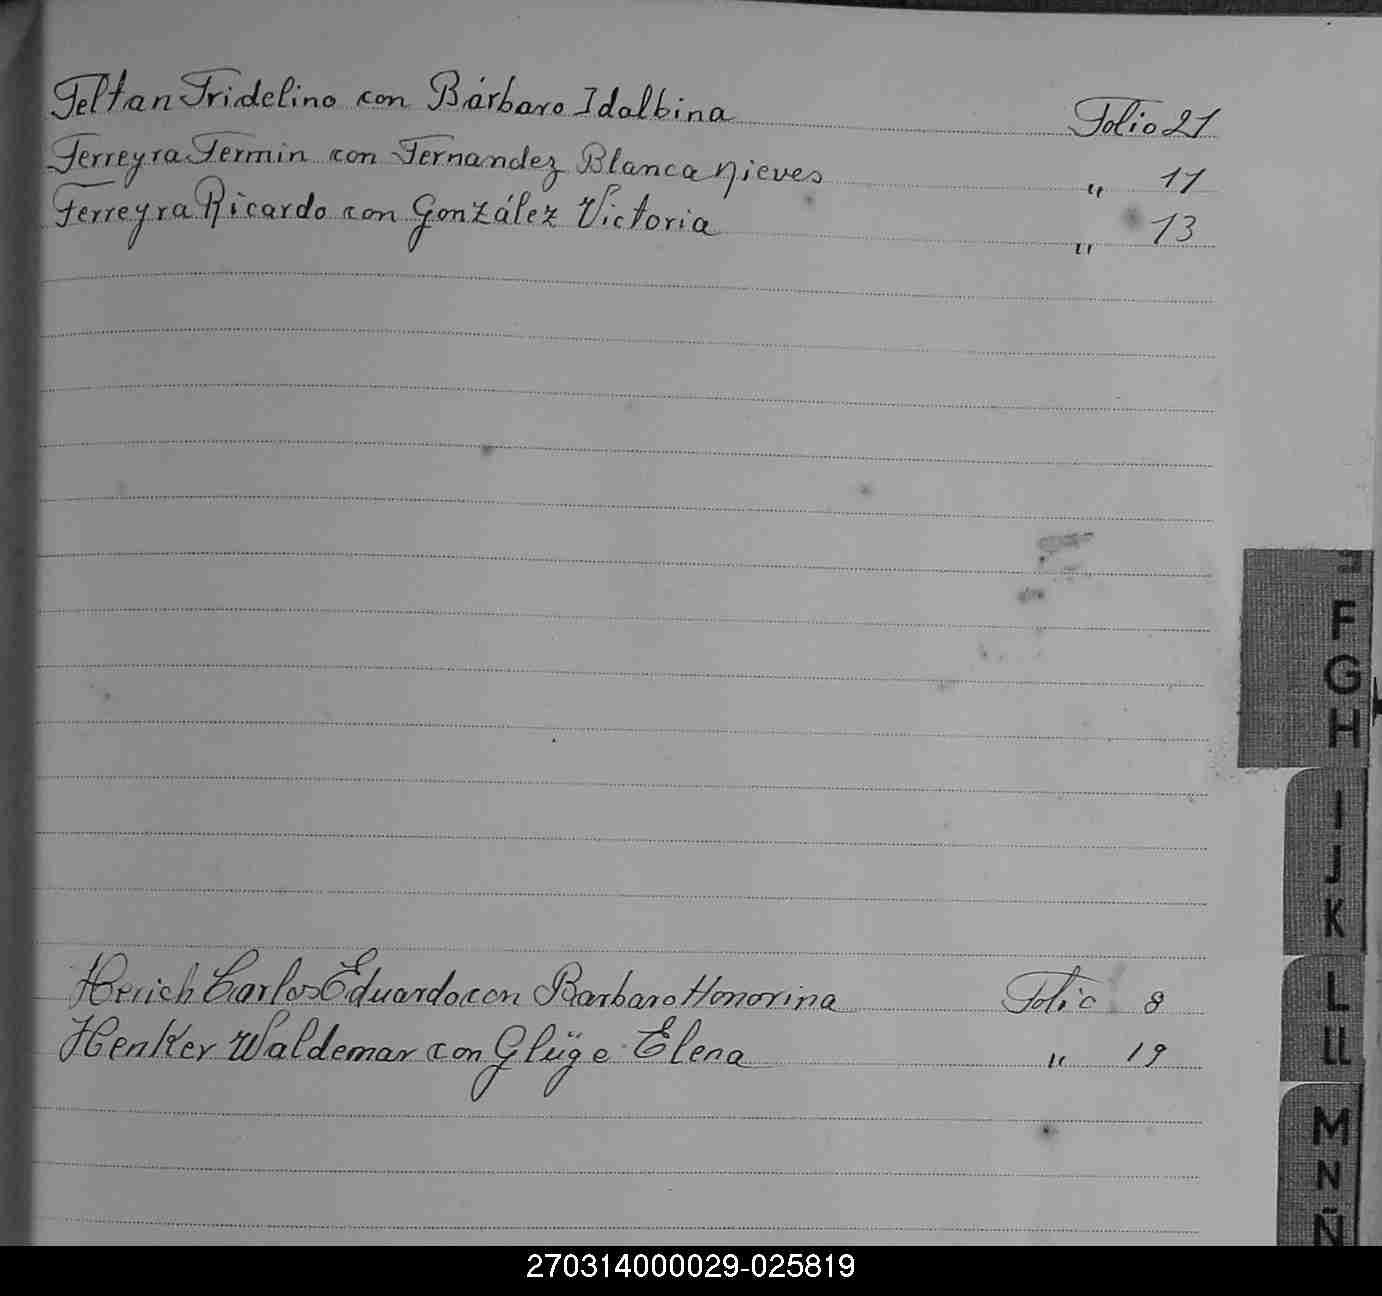 Feltan Fridelino con Bárbaro Idalbina Folio 21
Ferreyra Fermin con Fernandez Blanca Nieves " 11
Ferreyra Ricardo con González Victoria " 13
F
G
H
I
J
K
Herich Carlos Eduardo con Barbaro Honorina Folio 8
Henker Waldemar con Glüge Elena " 19
L
LL
M
N
Ñ
270314000029-025819